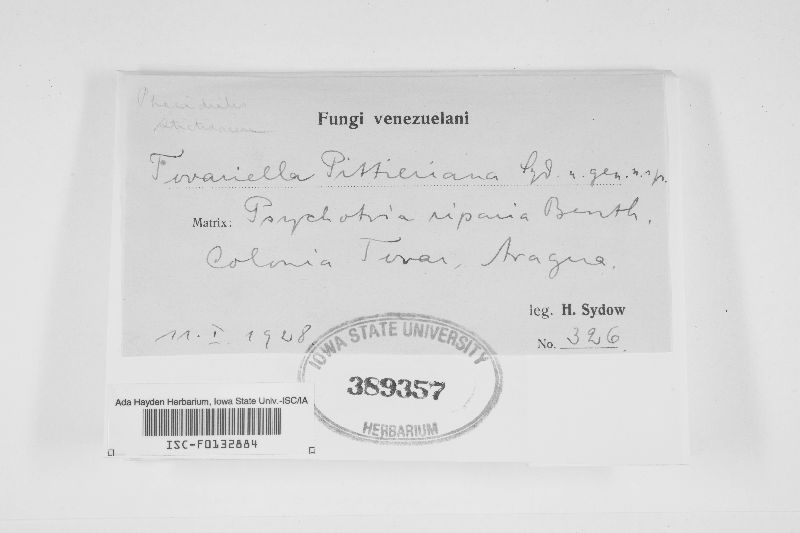 Phacidiales
Stictidaceae
Fungi venezuelani
Tovariella Pittieriana Syd. n. gen. n. sp.
Matrix: Psychotria riparia Benth.
Colonia Tovar, Aragua.
leg. H. Sydow
11. I. 1928
No. 326
IOWA STATE UNIVERSITY
389357
HERBARIUM
Ada Hayden Herbarium, Iowa State Univ.-ISC/IA
ISC-F0132884